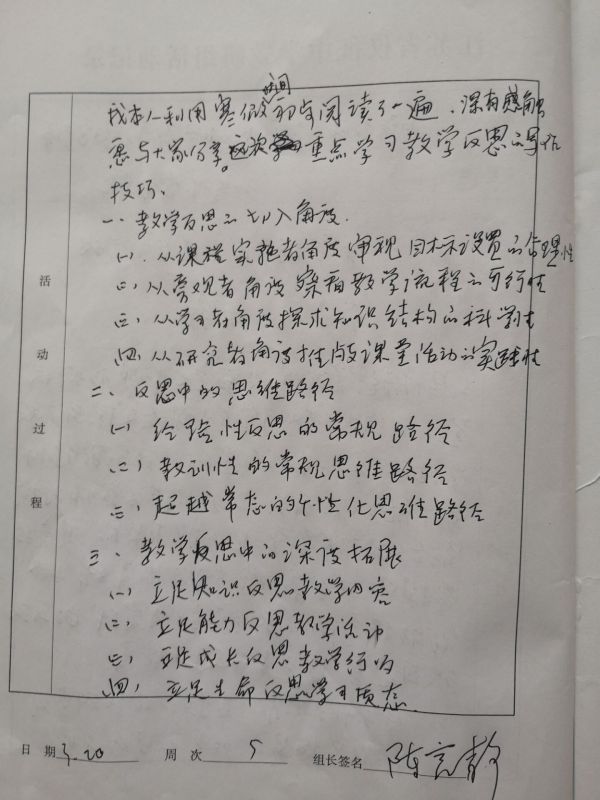 时间
我本人利用寒假初步阅读了一遍，深有感触
愿与大家分享。重点学习教学反思的写作
技巧。
一、教学反思的切入角度
(一)、从课程实施者角度审视目标设置的合理性
(二)从旁观者角度察看教学流程的可行性
(三)从学习者角度探求知识结构的科学性
(四)从研究者角度推敲课堂活动的实践性
二、反思中的思维路径
(一) 经验性反思的常规路径
(二) 教训性的常规思维路径
(三) 超越常态的个性化思维路径
三、教学反思中的深度拓展
(一) 立足知识反思教学内容
(二) 立足能力反思教学活动
(三) 立足成长反思教学行为
(四) 立足生命反思学习质态
活动过程
日 期 3.20 周 次 5 组长签名 陈